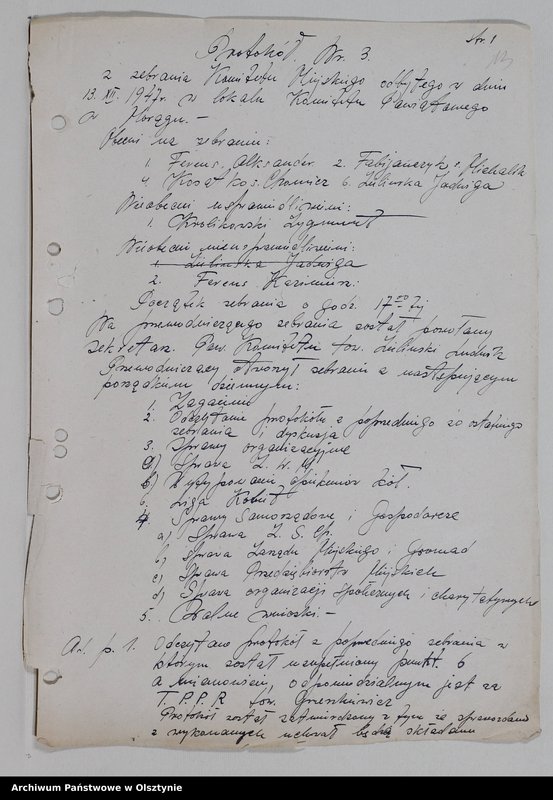 str. 1
13
Protokół Nr. 3.
z zebrania Komitetu Miejskiego odbytego w dniu
13. XII. 1947r. w lokalu Komitetu Powiatowego
w Morągu. –
Obecni na zebraniu:
1. Ferens Aleksander 2. Fabijańczyk 3. Michalik
4. Kosąt 5. Chomicz 6. Żulinska Jadwiga
Nieobecni usprawiedliwieni:
1. Królikowski Zygmunt
Nieobecni nieusprawiedliwieni:
1. Żulinska Jadwiga
2. Ferens Kazimierz.
Początek zebrania o godz. 17
Na przewodniczącego zebrania został powołany
sekretarz. Pow. Komitetu tow. Żulinski Ludwik
Przewodniczący otworzył zebranie z następującym
porządkiem dziennym:
1. Zagajenie
2. Odczytanie protokółu z poprzedniego zebrania i dyskusja
3. Sprawy organizacyjne
a) Sprawa Z. W. M.
b)
c. Liga Kobiet
4. Sprawy Samorządowe i Gospodarcze
a) Sprawa Z. S. Ch.
b) Sprawa Zarządu Miejskiego i Gromad
c) Sprawa Przedsiębiorstw Miejskich
d) Sprawa organizacji społecznych i charytatywnych
5. Wolne wnioski. –
Ad. p. 1. Odczytano protokół z poprzedniego zebrania w
którym został uzupełniony punkt. 6
a mianowicie, odpowiedzialnym jest za
T. P. P. R tow.
Protokół został zatwierdzony z tym że sprawozdania
z wykonanych uchwał będą składane
Archiwum Państwowe w Olsztynie